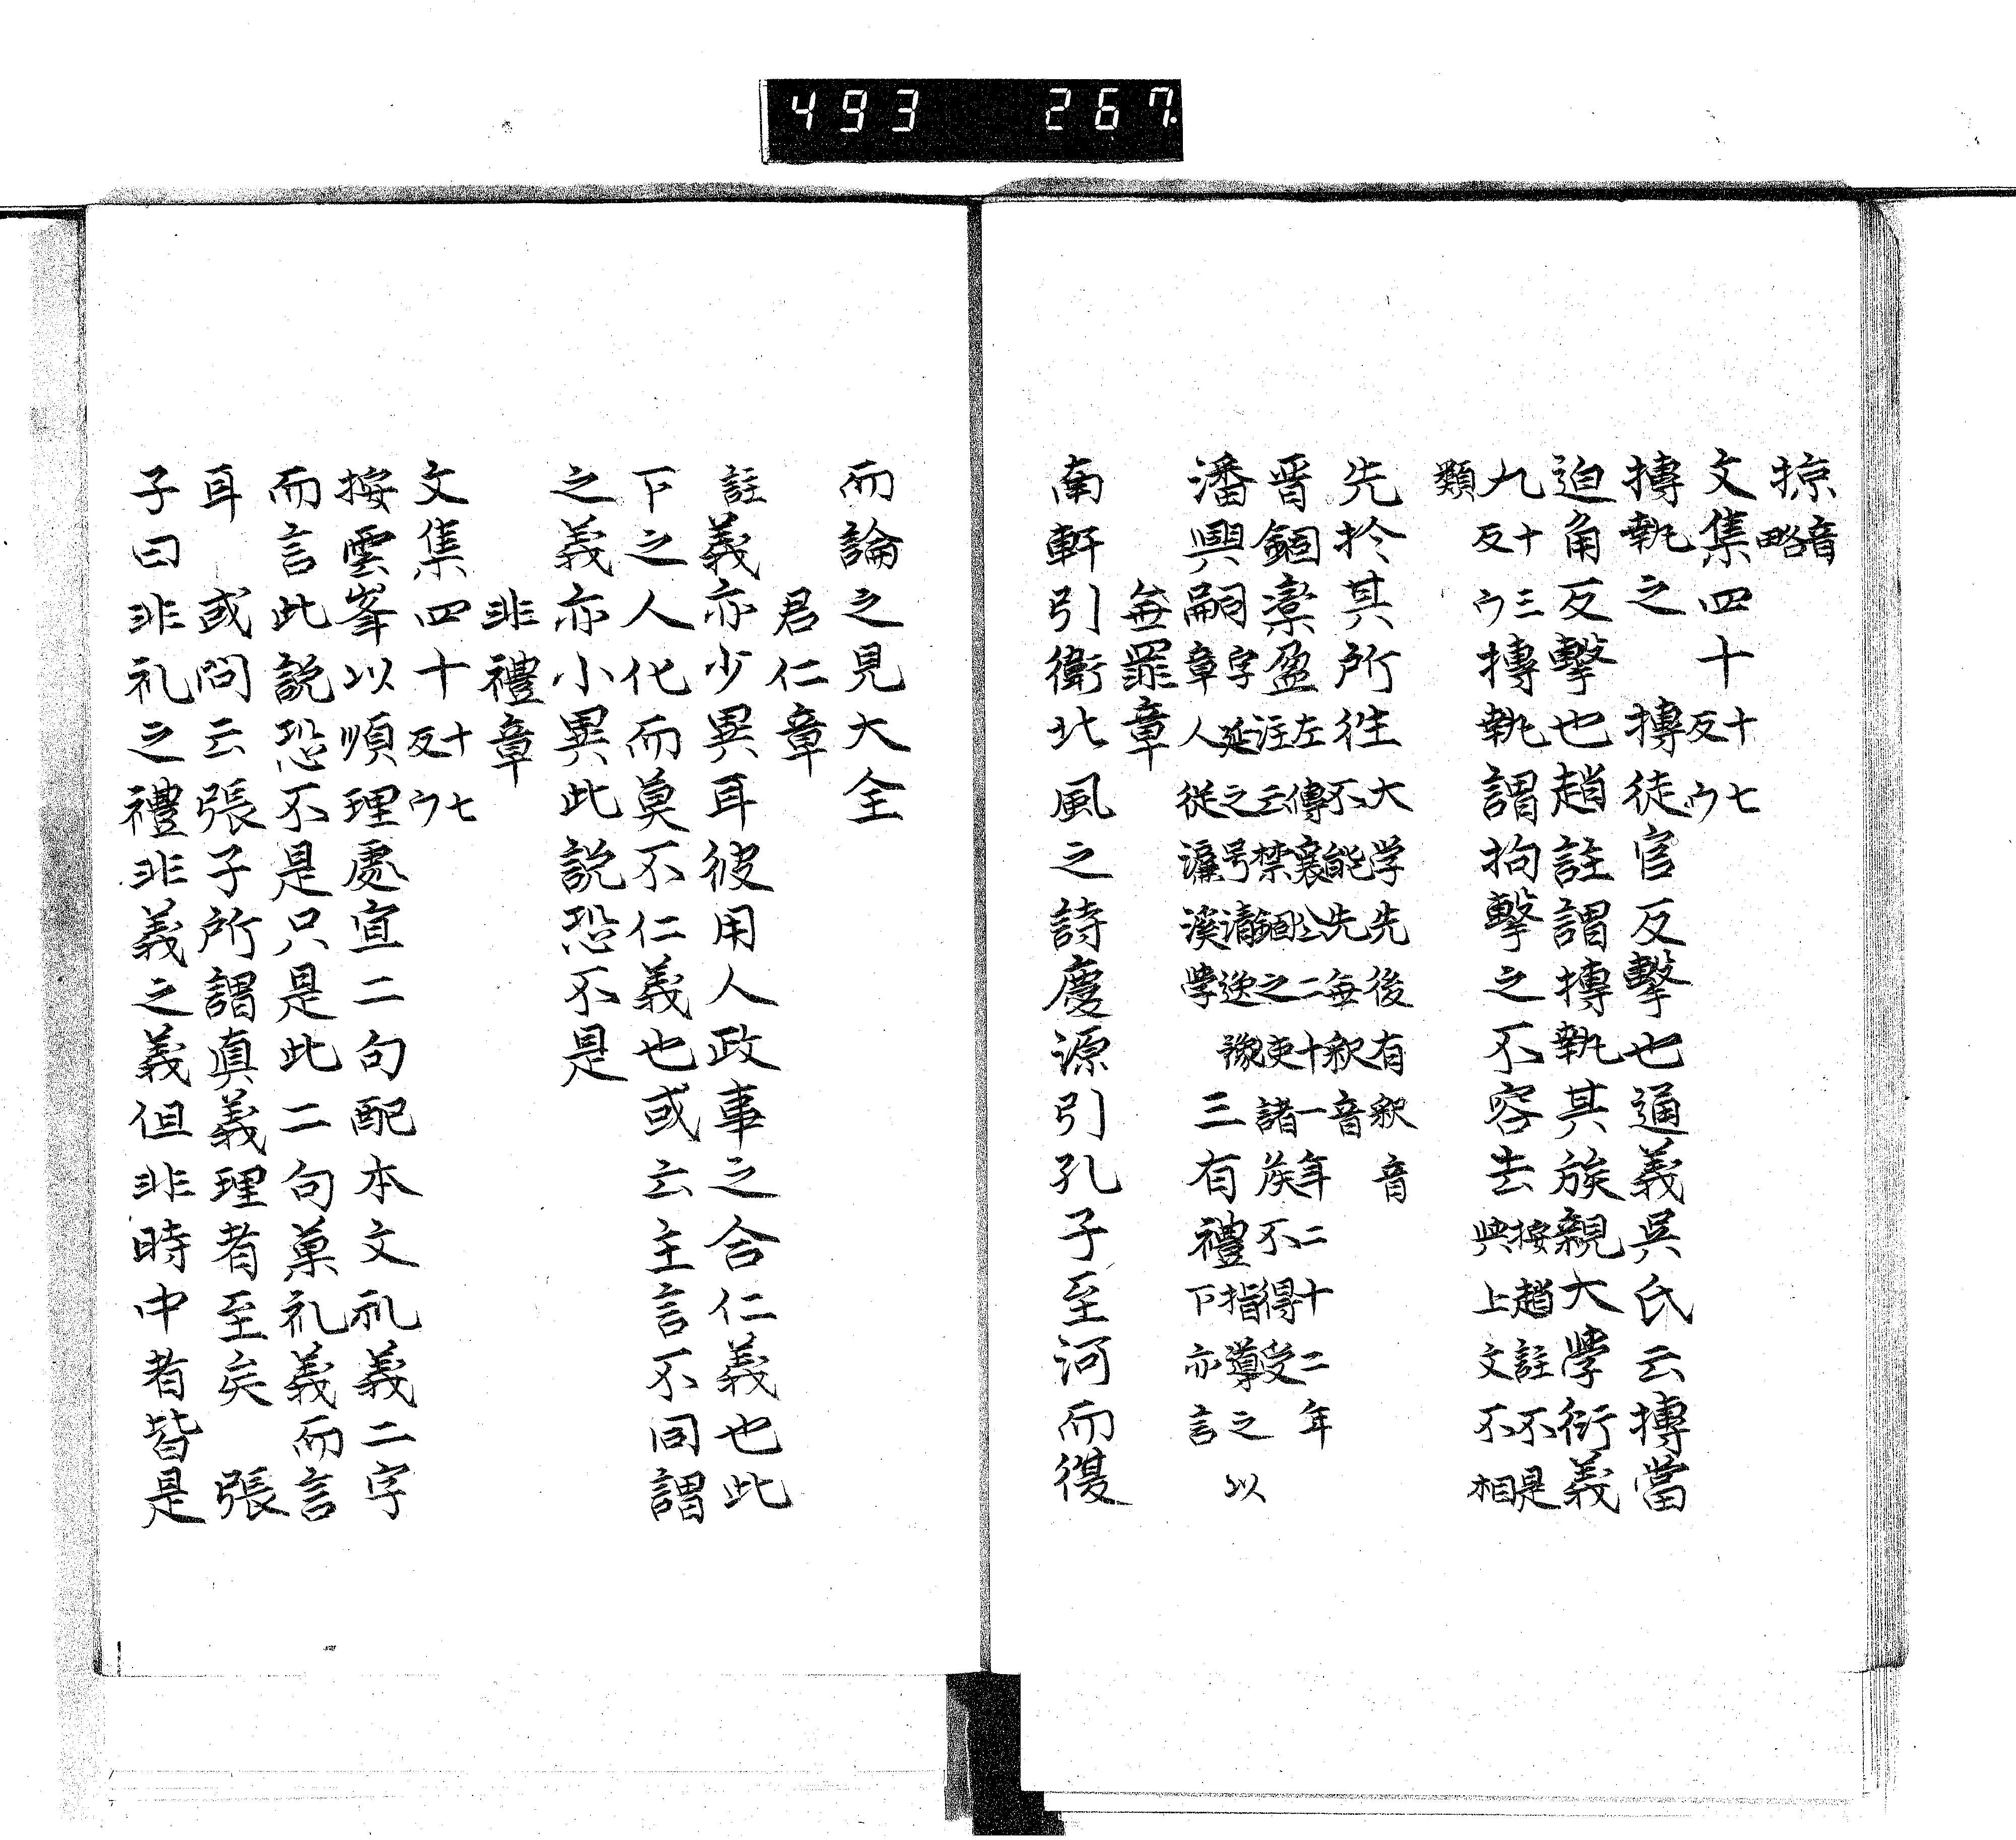 493 267.
掠音略
文集四十十七反ウ
搏執之 搏徒官反擊也通義吳氏云搏當
迫角反擊也趙註謂搏執其族親大學衍義
九十三反ウ搏執謂拘擊之不容去按趙註不是與上文不相
類
先於其所往大学先後有釈音不能先每釈音
晋錮欒盈左傳襄公二十一年二十二年注云禁錮之使諸侯不得受
潘興嗣字延之号清逸豫章人從濂溪學三有禮指導之以下亦言
無罪章
南軒引衛北風之詩慶源引孔子至河而復
而論之見大全
君仁章
註義亦少異耳彼用人政事之合仁義也此
下之人化而莫不仁義也或云主言不同謂
之義亦小異此說恐不是
非禮章
文集四十十七反ウ
按雲峯以順理處宜二句配本文礼義二字
而言此說恐不是只是此二句菓礼義而言
耳 或問云張子所謂真義理者至矣 張
子曰非礼之禮非義之義但非時中者皆是